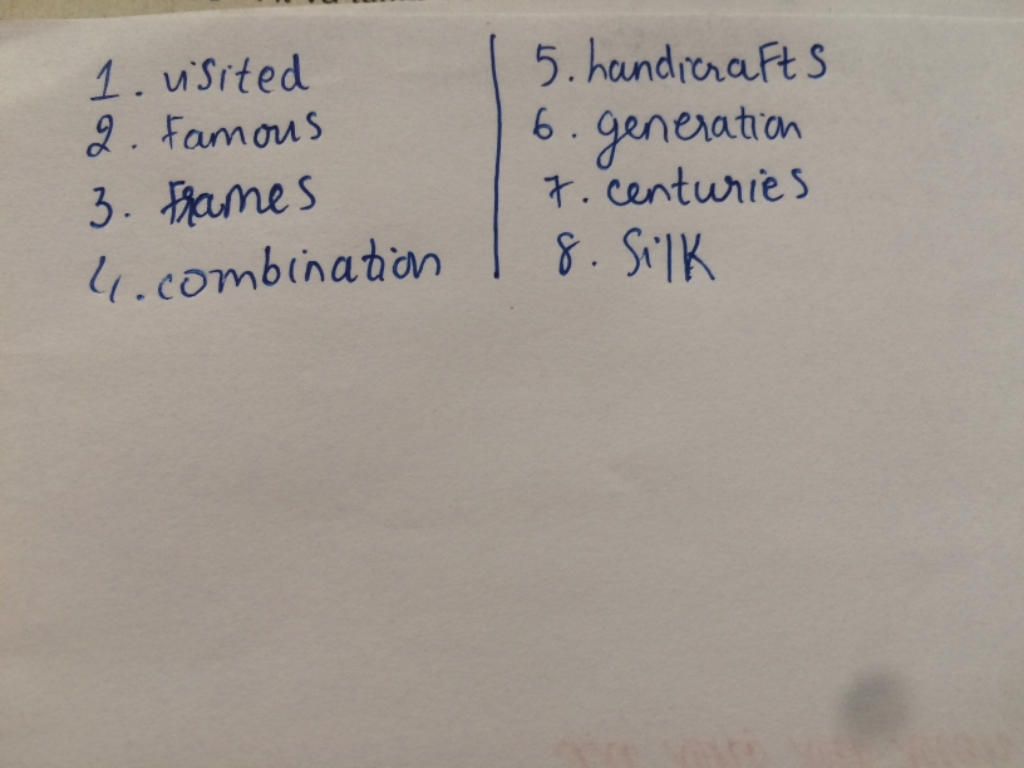 1. visited
2. Famous
3. Frames
4. combination
5. handicrafts
6. generation
7. centuries
8. Silk